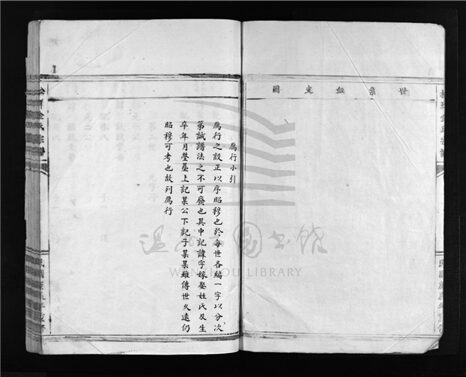 世系圖
鴈行小引
鴈行之設正以序昭穆也於每世各編一字以分次
第誠譜法之不可廢也其中記諱字嫁娶姓氏及生
卒年月塋墓上記某公下記子某某雖傳世久遠仍
昭穆可考也故列鴈行
温州市图书馆
WENZHOU LIBRARY